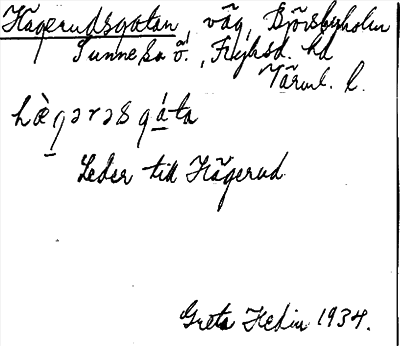 Hägerudsgatan, väg, Björsbyholm
Sunne sn ö., Fryksd. hd
Värml. l.
hæ̀gərəsgáta
Leder till Hägerud.
Greta Hedin 1934.